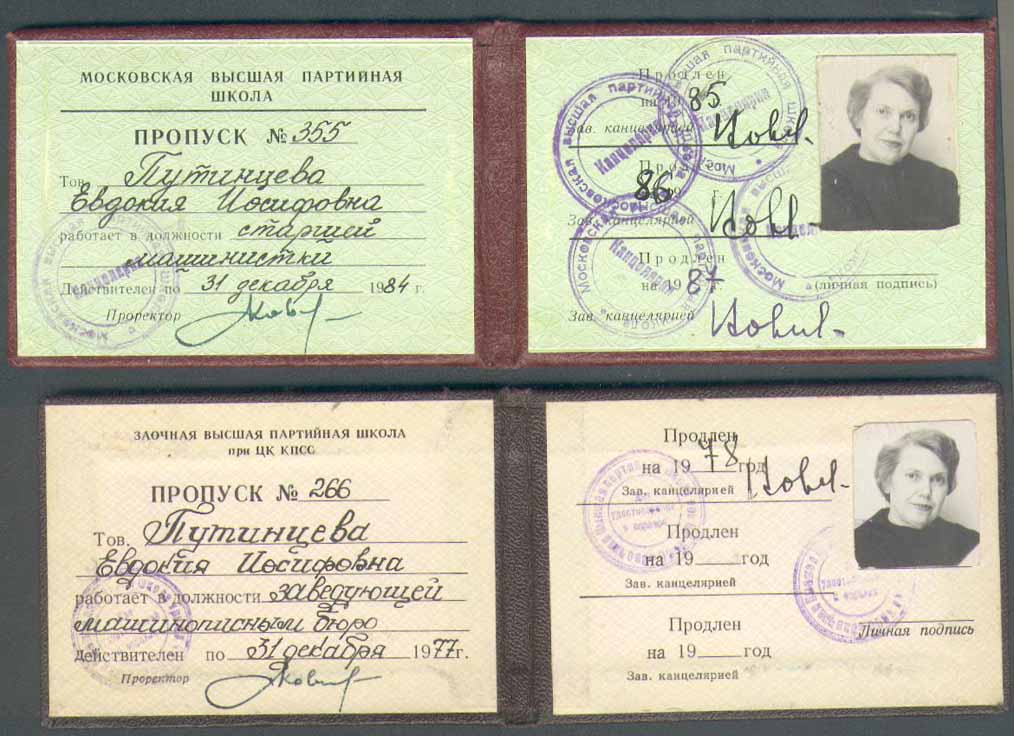 МОСКОВСКАЯ ВЫСШАЯ ПАРТИЙНАЯ
ШКОЛА
ПРОПУСК № 355
Тов. Путинцева
Евдокия Иосифовна
работает в должности старшей
машинистки
Действителен по 31 декабря 1984 г.
Проректор
Продлен
на 1985
Зав. канцелярией
86
Зав. канцелярией
Продлен
на 1987 г.
Зав. канцелярией
(личная подпись)
Московская высшая партийная школа
Канцелярия
ЗАОЧНАЯ ВЫСШАЯ ПАРТИЙНАЯ ШКОЛА
при ЦК КПСС
ПРОПУСК № 266
Тов. Путинцева
Евдокия Иосифовна
работает в должности заведующей
машинописным бюро
Действителен по 31 декабря 1977 г.
Проректор
Продлен
на 1978 год
Зав. канцелярией
Продлен
на 19 год
Зав. канцелярией
Продлен
на 19 год
Зав. канцелярией
Личная подпись